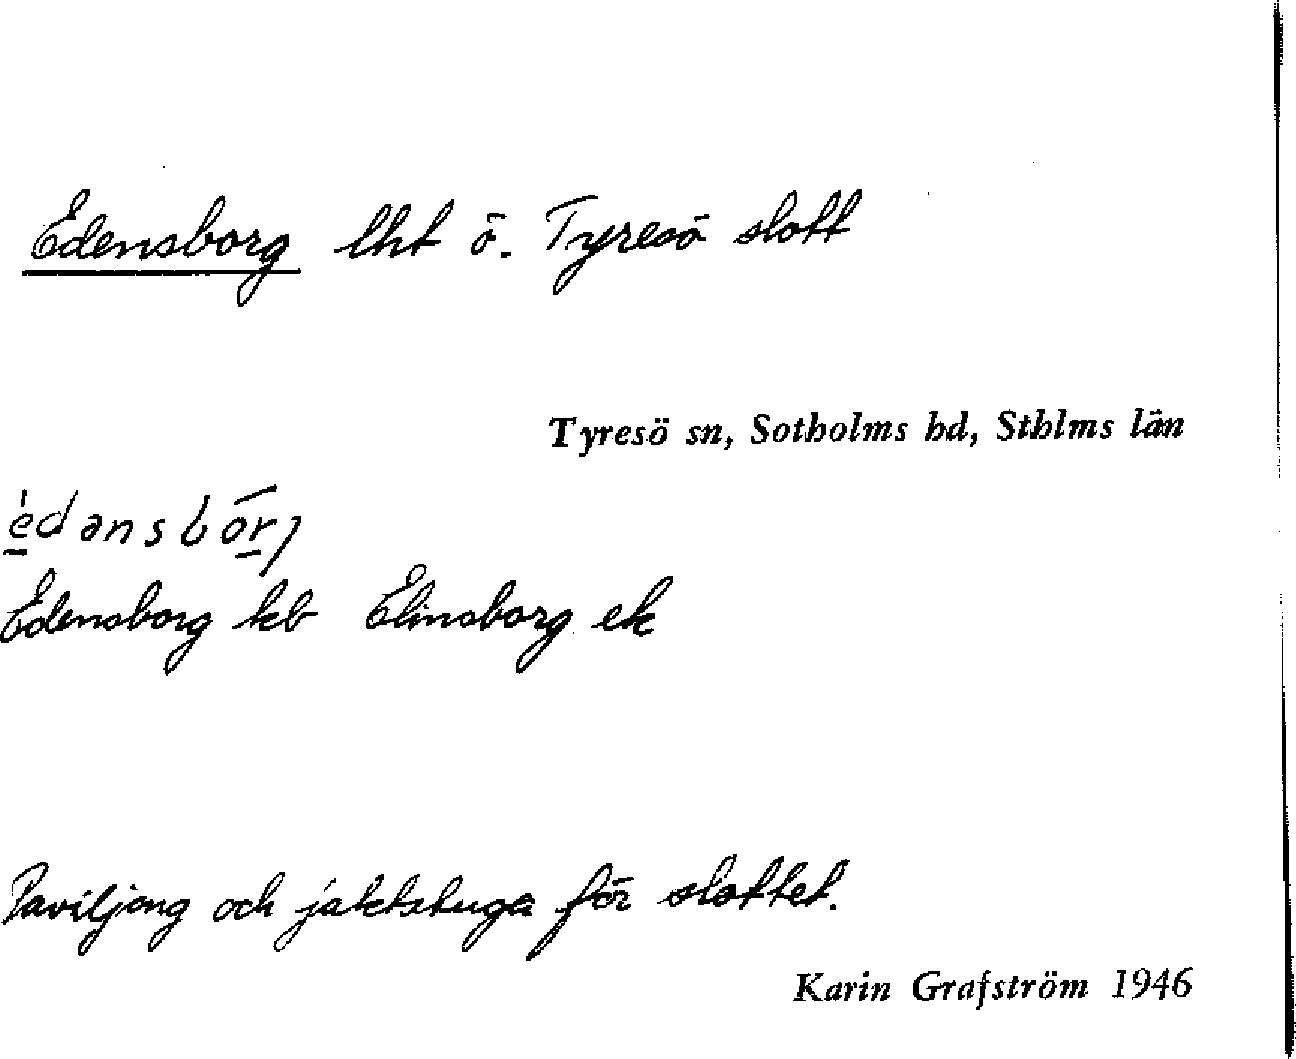 Edensborg lht ö. Tyresö slott
Tyresö sn, Sotholms hd, Sthlms län
Edensborg kb Elinsborg ek
Paviljong och jaktstuga för slottet.
Karin Grafström 1946